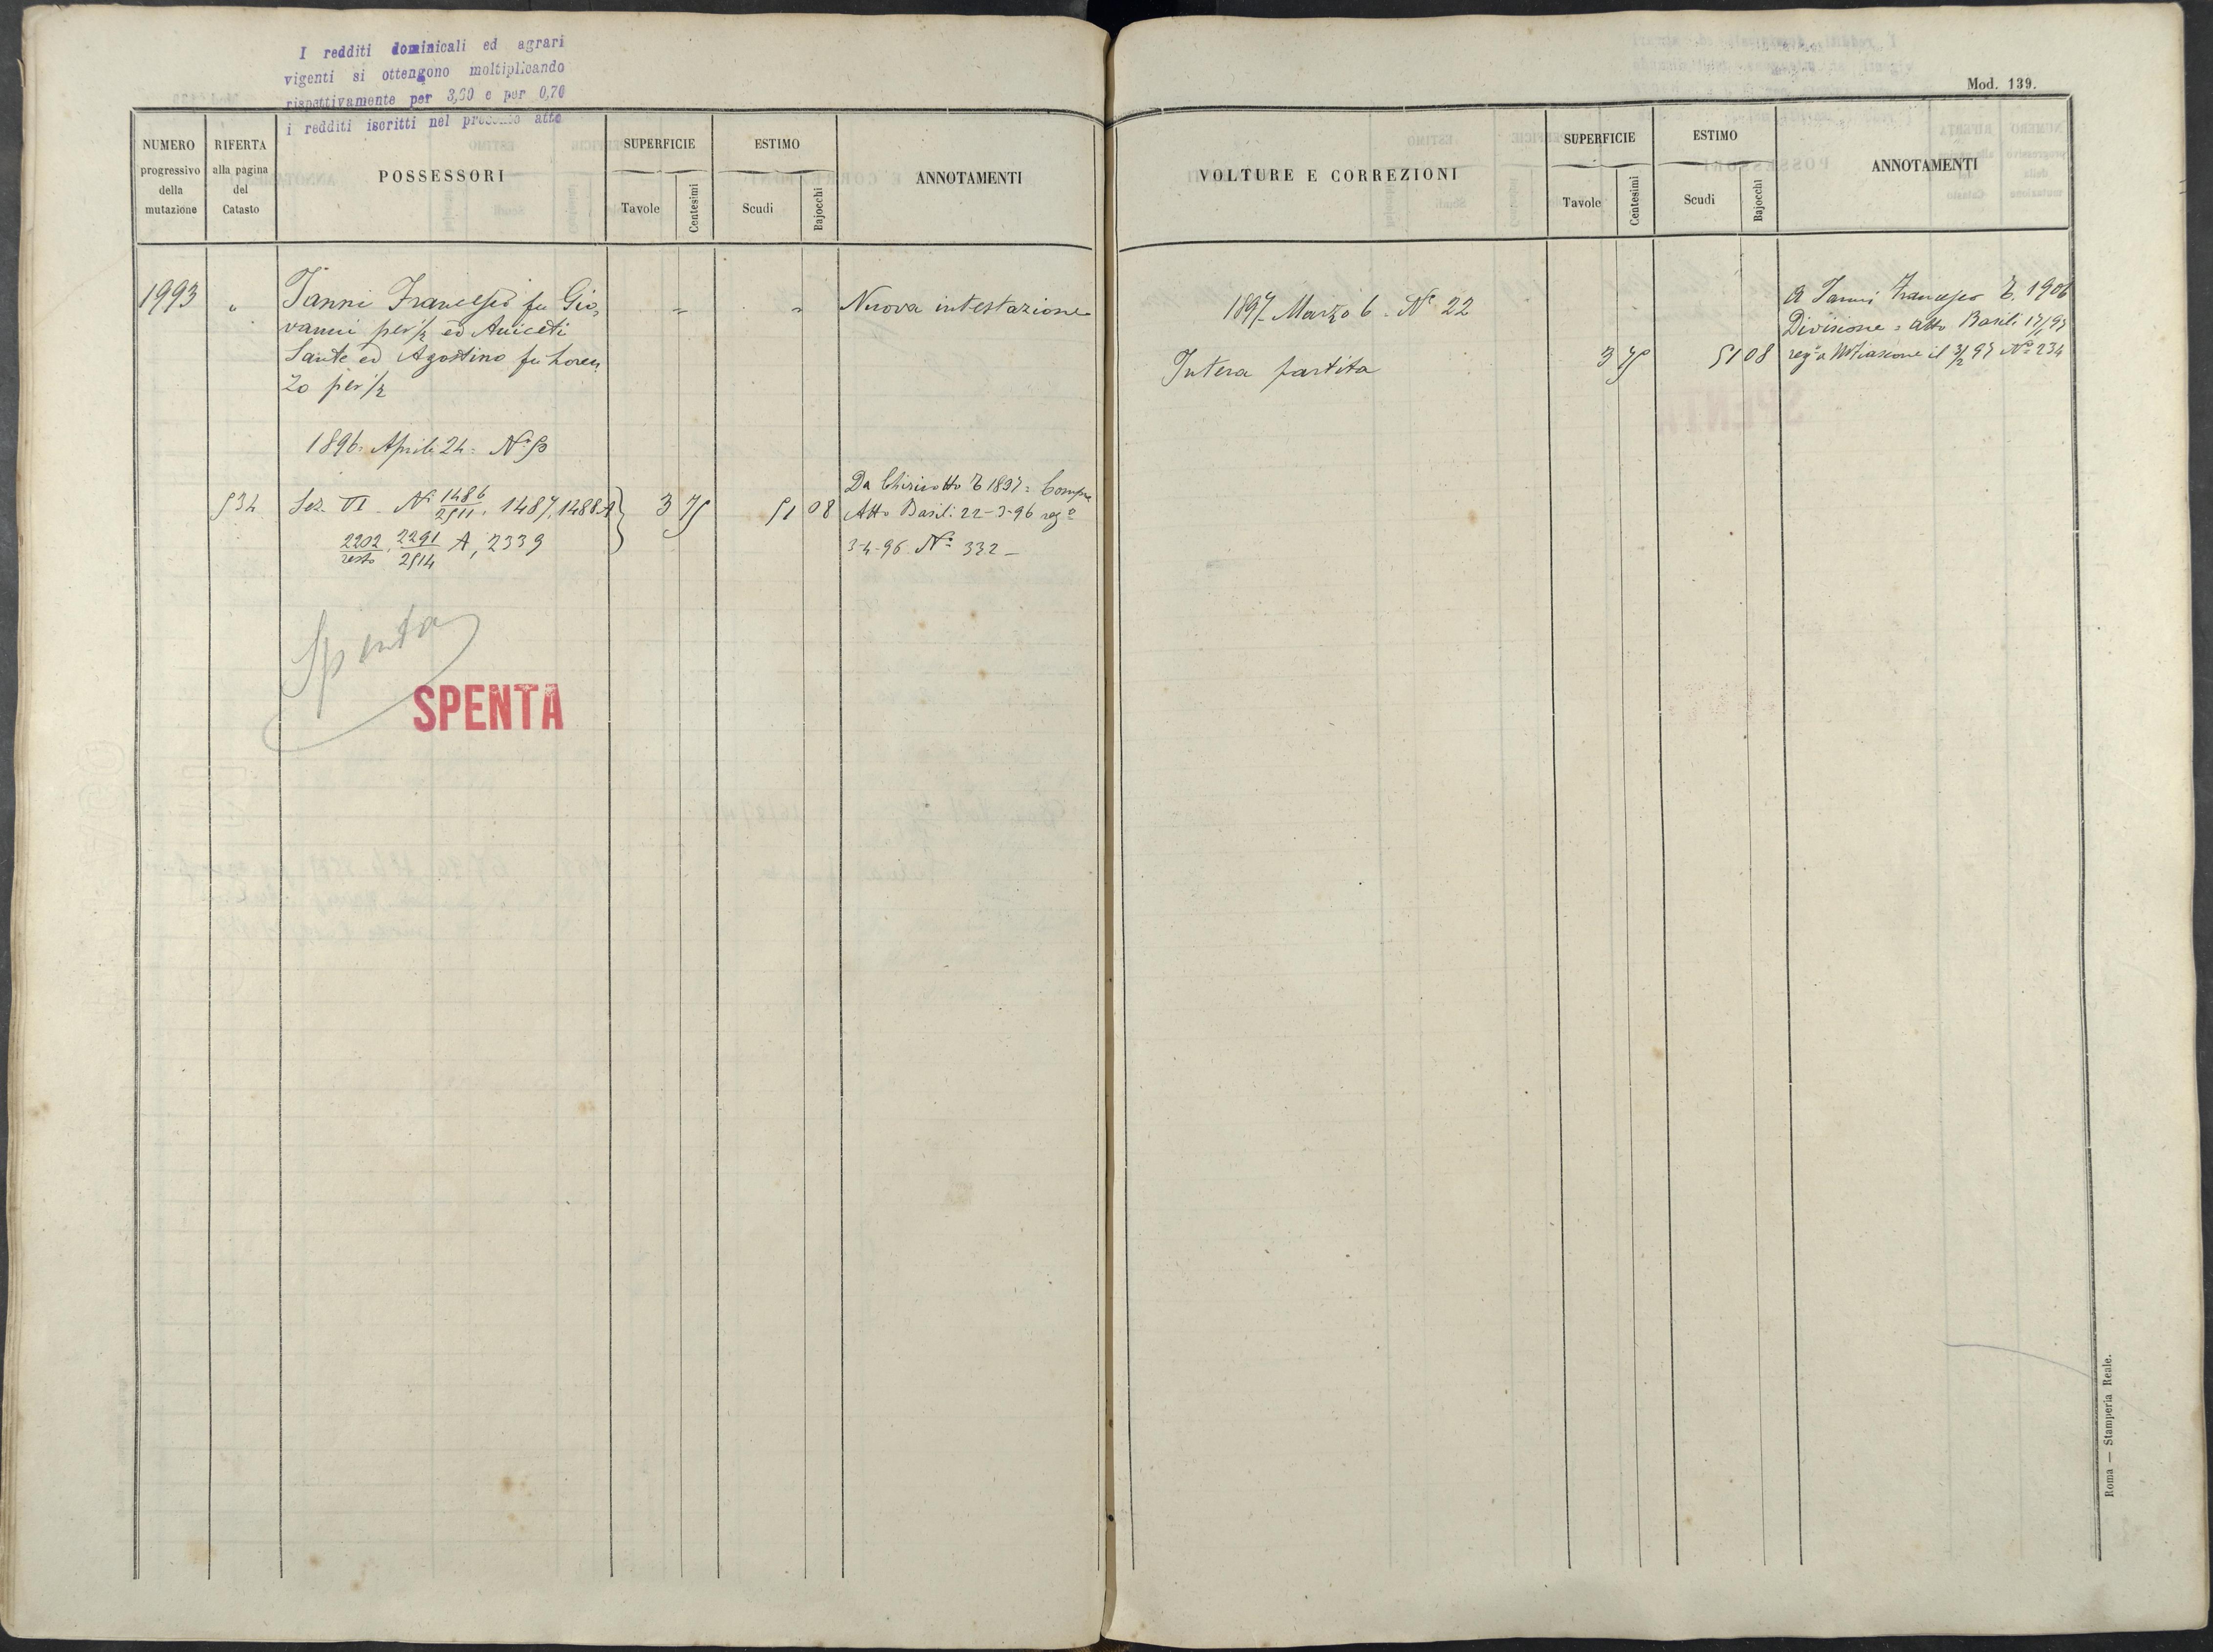 I redditi dominicali ed agrari
vigenti si ottengono moltiplicando
rispettivamente per 3,60 e per 0,70
i redditi iscritti nel presente atto
NUMERO
progressivo
della
mutazione
RIFERTA
alla pagina
del
Catasto
POSSESSORI
SUPERFICIE
Tavole
Centesimi
ESTIMO
Scudi
Bajocchi
ANNOTAMENTI
1993 " Ianni Francesco fu Gio, " " Nuova intestazione
vanni per 1/2 ed Aniceti
Sante ed Agostino fu Loren
zo per 1/2
1896 = Aprile 24 = N°
534 Sez. VI N° 1486/2511, 1487, 1488 A 3 75 51 08
2202/resto, 2291/2514 A, 2339
Da Chiricotto T 1837 = Compra
Atto Basili 22-3-96 reg°
3-4-96 N° 332 -
Spenta
SPENTA
Mod. 139.
VOLTURE E CORREZIONI
SUPERFICIE
Tavole
Centesimi
ESTIMO
Scudi
Bajocchi
ANNOTAMENTI
1897 Marzo 6 = N° 22
Intera partita 3 75 51 08
A Ianni Francesco T. 1906
Divisione = atto Basili 17/1 97
reg° a Mtfiascone il 3/2 97 N° 234
Roma — Stamperia Reale.